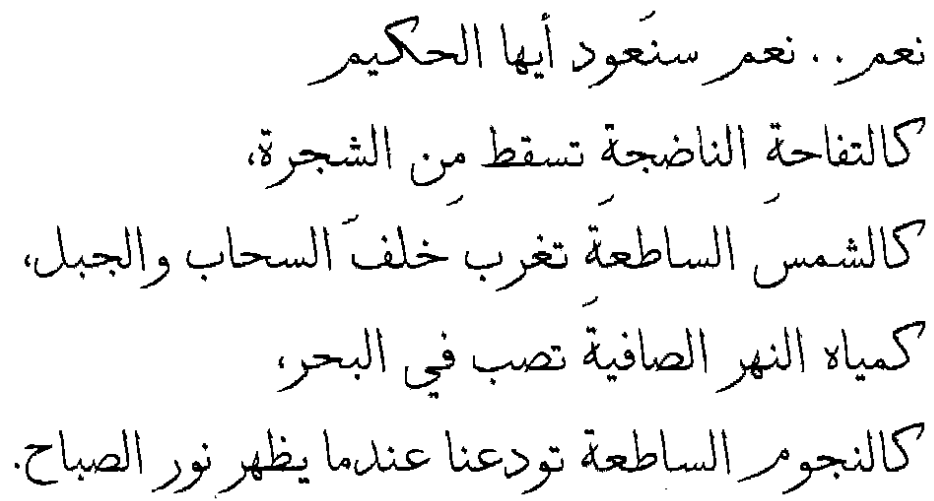 نعم.. نعم سنَعود أيها الحكيم
كالتفاحة الناضجة تسقط من الشجرة،
كالشمس الساطعة تغرب خلف السحاب والجبل،
كمياه النهر الصافية تصب في البحر،
كالنجوم الساطعة تودعنا عندما يظهر نور الصباح.